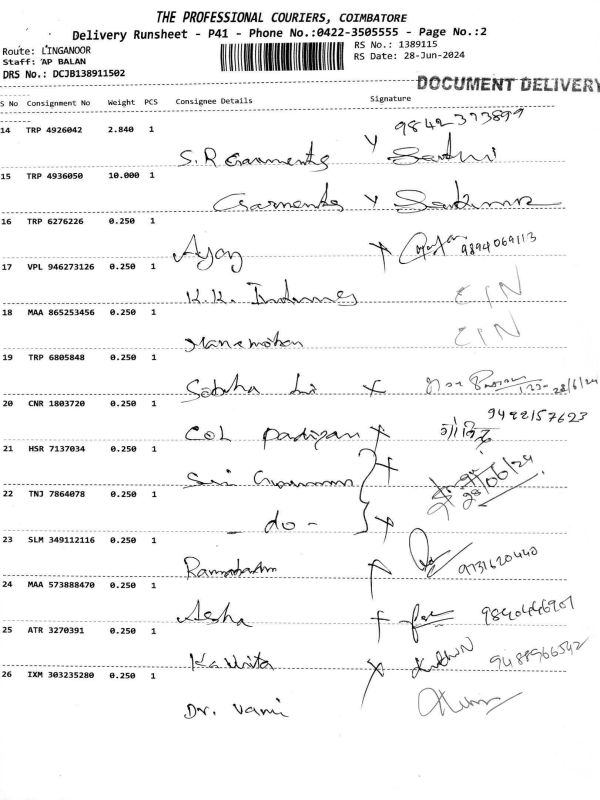 THE PROFESSIONAL COURIERS, COIMBATORE
Delivery Runsheet - P41 - Phone No.:0422-3505555 - Page No.:2
Route: LINGANOOR
Staff: AP BALAN
DRS No.: DCJB138911502
RS No.: 1389115
RS Date: 28-Jun-2024
DOCUMENT DELIVERY
S No Consignment No Weight PCS Consignee Details Signature
14 TRP 4926042 2.840 1 9842373899
S.R Garments
15 TRP 4936050 10.000 1
Garments
16 TRP 6276226 0.250 1
Ajay 9894069113
17 VPL 946273126 0.250 1
K.K.
18 MAA 865253456 0.250 1
19 TRP 6805848 0.250 1
28/6/24
20 CNR 1803720 0.250 1 9422157623
COL Padiyan
21 HSR 7137034 0.250 1
Sri 28/06/24
22 TNJ 7864078 0.250 1
- do -
23 SLM 349112116 0.250 1
9731620440
24 MAA 573888470 0.250 1
Asha
25 ATR 3270391 0.250 1
Kavita 9488966542
26 IXM 303235280 0.250 1
Dr. Vani